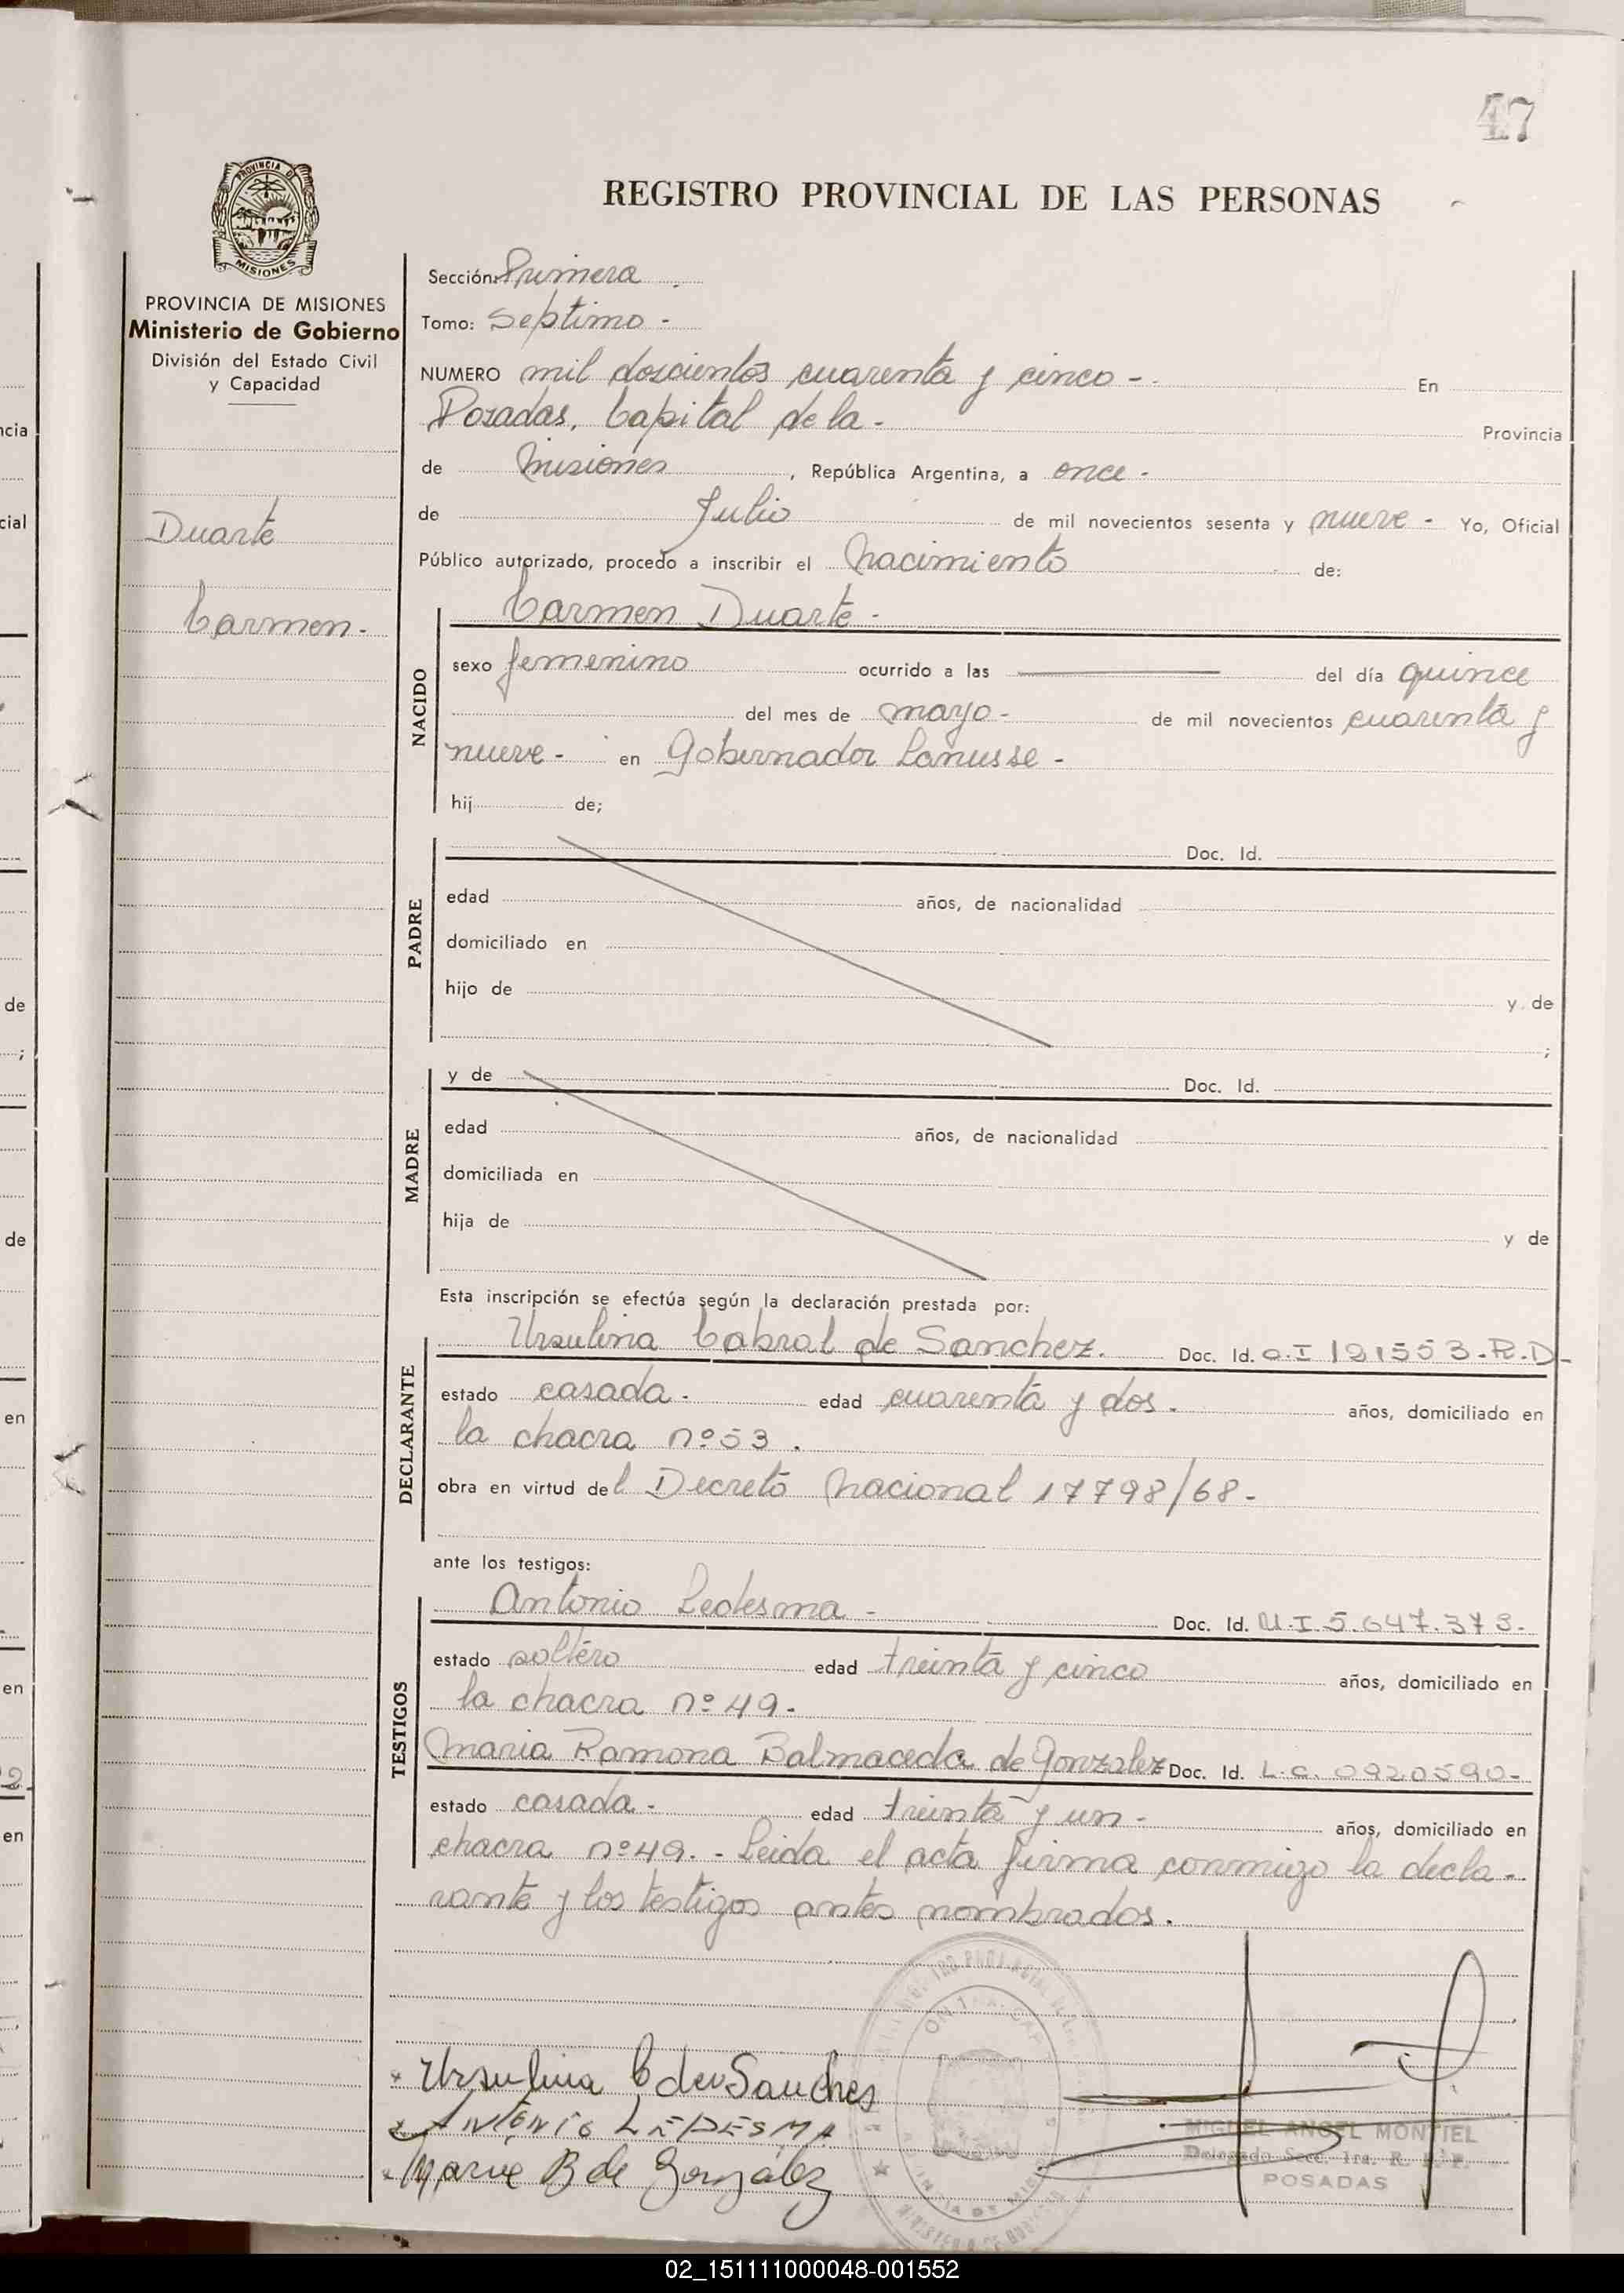 47
PROVINCIA DE
MISIONES
PROVINCIA DE MISIONES
Ministerio de Gobierno
División del Estado Civil
y Capacidad
Duarte
Carmen.-
REGISTRO PROVINCIAL DE LAS PERSONAS
Sección: Primera
Tomo: Septimo -
NUMERO mil doscientos cuarenta y cinco -. En
Posadas, Capital de la - Provincia
de Misiones , República Argentina, a once -
de Julio de mil novecientos sesenta y nueve - Yo, Oficial
Público autorizado, procedo a inscribir el nacimiento de:
Carmen Duarte -
NACIDO
sexo femenino ocurrido a las del día quince
del mes de mayo - de mil novecientos cuarenta y
nueve - en Gobernador Lanusse -
hij de;
PADRE
Doc. Id.
edad años, de nacionalidad
domiciliado en
hijo de y de
;
MADRE
y de Doc. Id.
edad años, de nacionalidad
domiciliada en
hija de y de
Esta inscripción se efectúa según la declaración prestada por:
DECLARANTE
Ursulina Cabral de Sanchez. Doc. Id. C.I 121553.R.D-
estado casada - edad cuarenta y dos. años, domiciliado en
la chacra nº 53 .
obra en virtud del Decreto Nacional 17798/68-
ante los testigos:
TESTIGOS
Antonio Ledesma - Doc. Id. M.I. 5.647.373.-
estado soltero edad treinta y cinco años, domiciliado en
la chacra nº 49-
Maria Ramona Balmaceda de Gonzalez Doc. Id. L.C. 0920590-
estado casada - edad treinta y un - años, domiciliado en
chacra nº 49. - Leida el acta firma conmigo la decla-
rante y los testigos antes nombrados.
Ursulina C de Sanches
ANTONIO LEDESMA
B de González
MIGUEL ANGEL MONTIEL
Delegado Secc. 1ra. R. P. P.
POSADAS
02_151111000048-001552